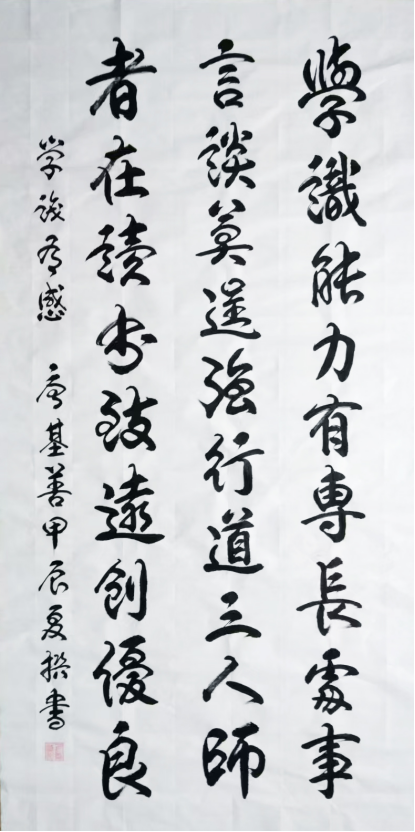 學識能力有專長處事
言談莫逞強行道三人師
者在讀書致遠創優良
學後有感 唐基善甲辰夏撰書